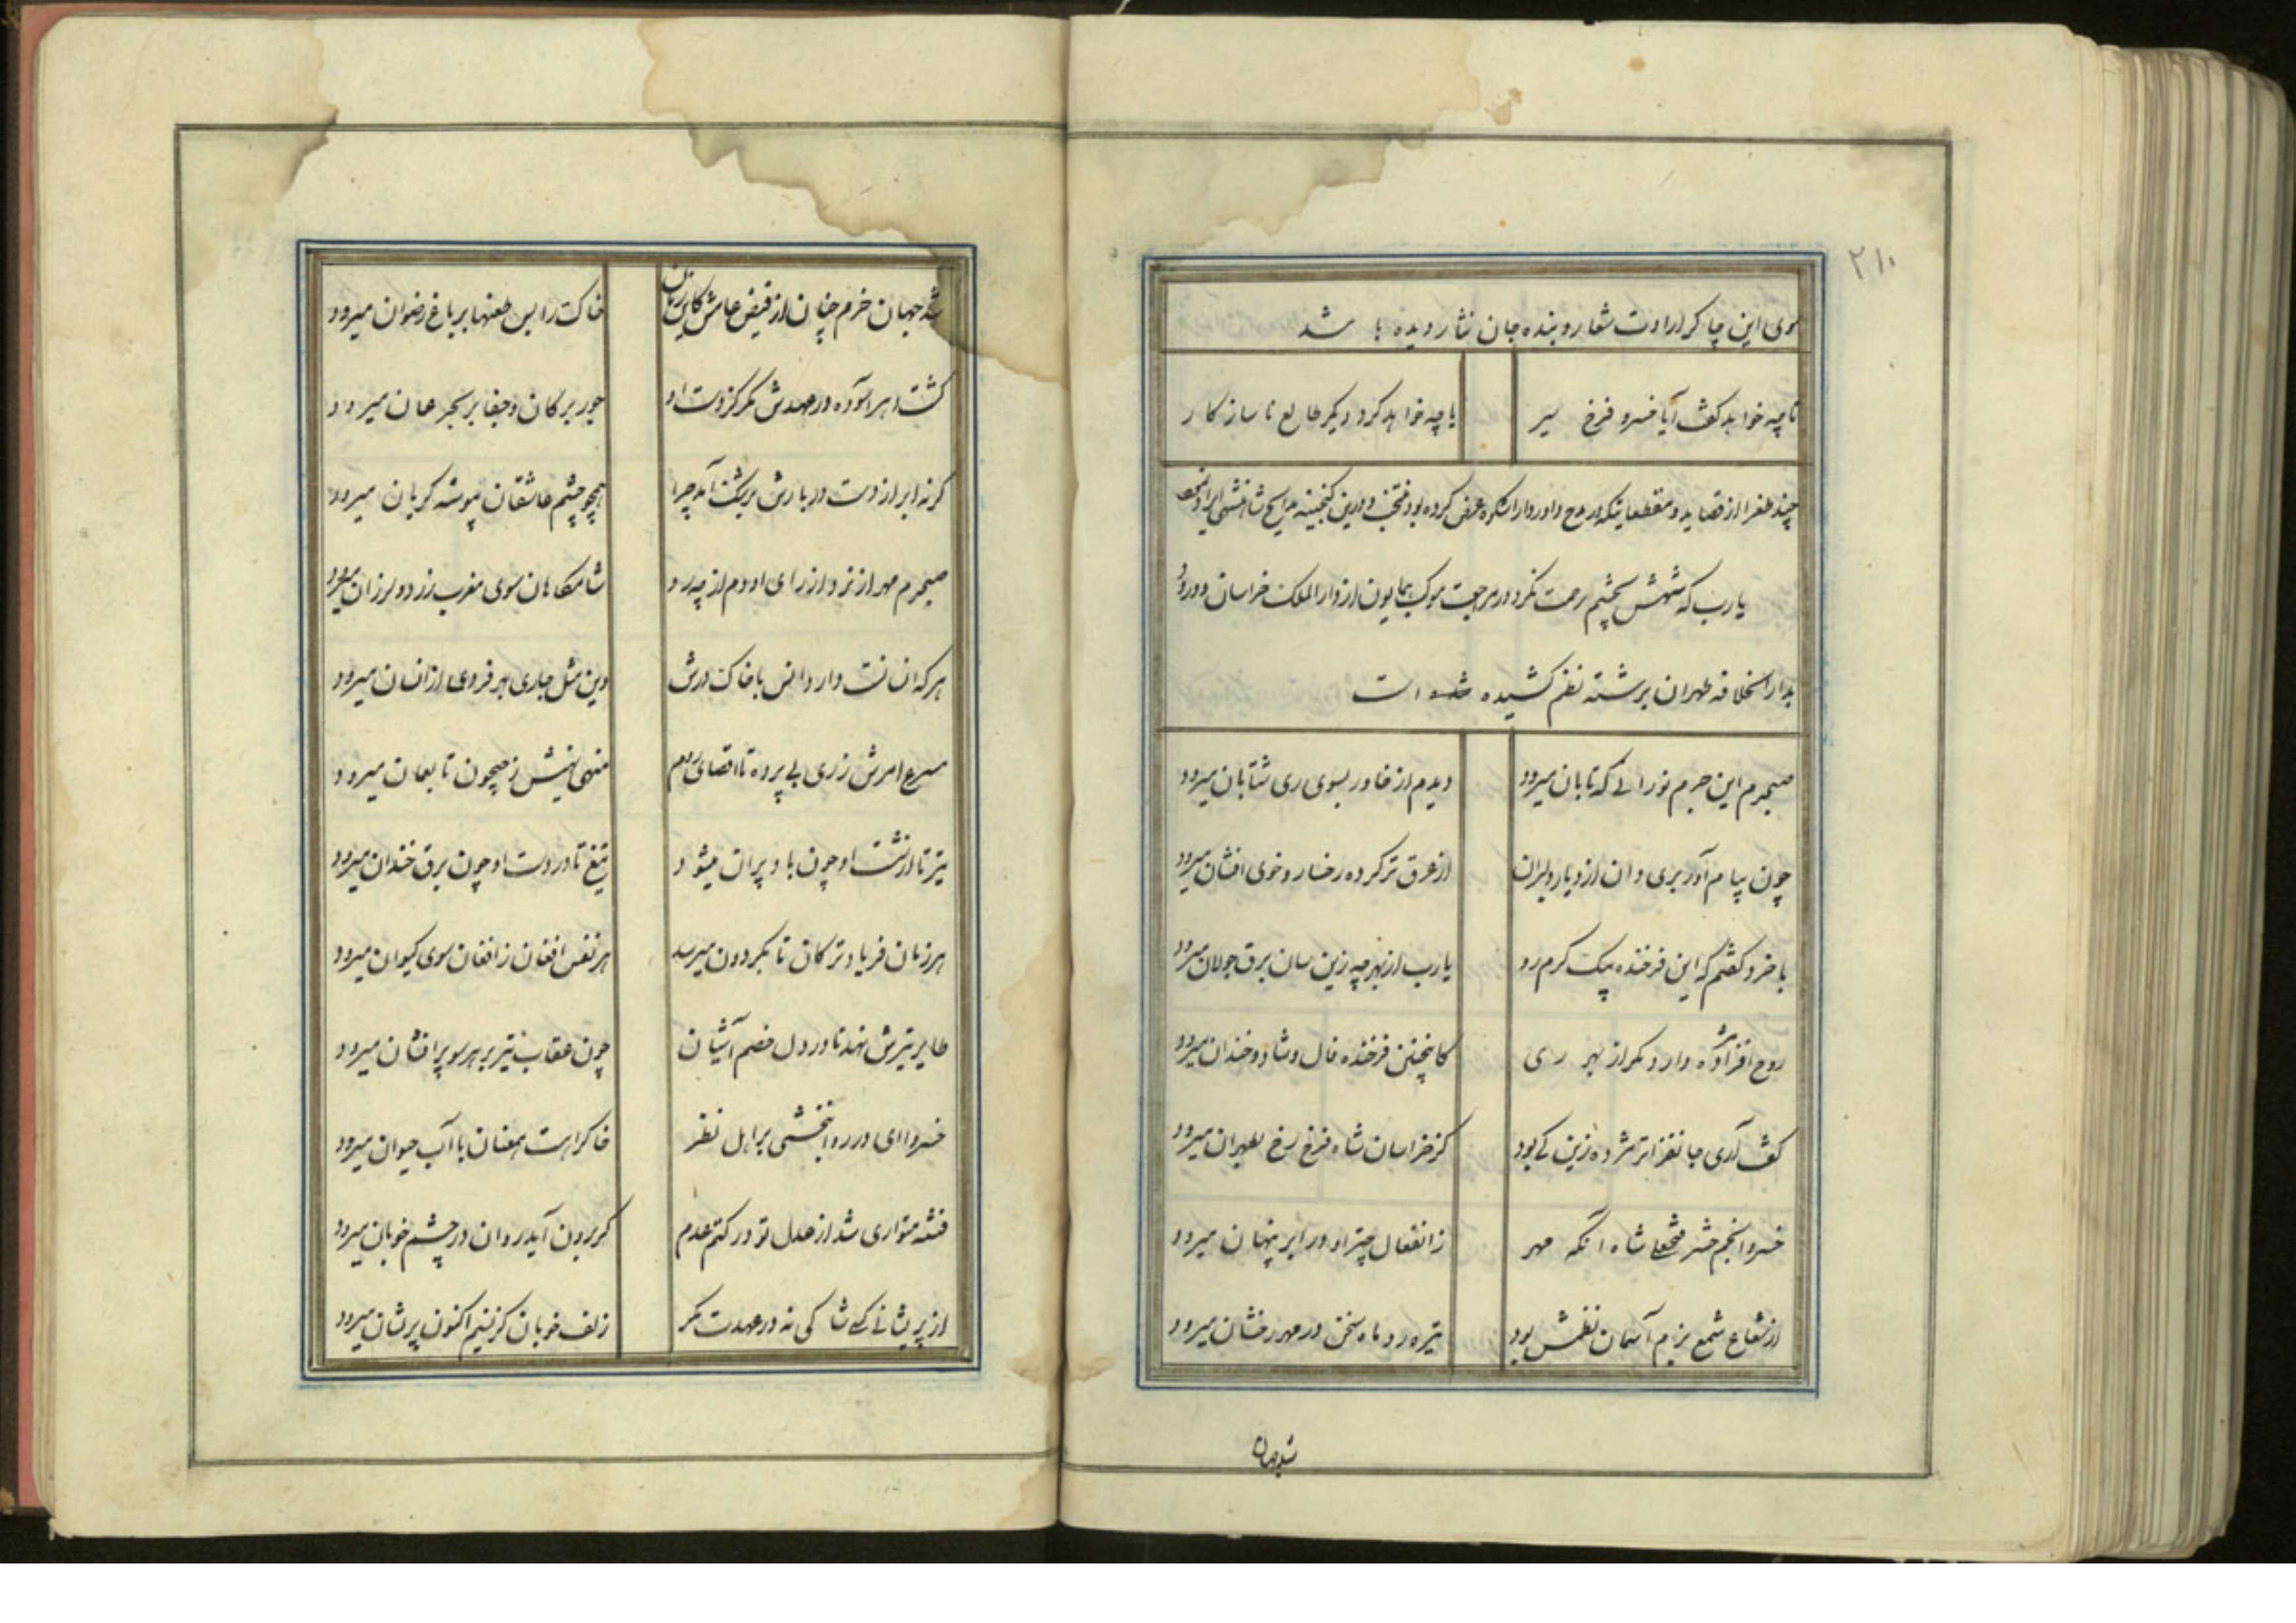 ۲۱۰
سوی این چاکر ارادت شعار و بنده جان نثار دیده باشد
تا چه خواهد گفت آیا خسرو فرخ سیر
یا چه خواهد کرد دیگر طالع ناسازکار
چند طغرا از قصاید و مقطعاتیکه در مدح داور دارا شکوه عرض کرده بود منتخب و درین گنجینه مدایح شاهنشهی ایراد نمود
یا رب که شهش بچشم رحمت نگرد در مراجعت موکب همایون از دار الملک خراسان و ورود
بدار الخلافه طهران برشته نظم کشیده شده است
صبحدم این جرم نورانی که تابان میرود
دیدم از خاور بسوی ری شتابان میرود
چون پیام آور بریدی وان از دیار دلبران
از عرق تر کرده رخسار و خوی افشان میرود
با خرد گفتم که این فرخنده پیک گرم رو
یا رب از بهر چه زین سان برق جولان میرود
روح افزا مژده دارد مگر از بهر ری
کاینچنین فرخنده فال و شاد و خندان میرود
گفت آری جانفزاتر مژده زین کی بود
کز خراسان شاه فرخ رخ بطهران میرود
خسرو انجم حشر فتحعلی شاه آنکه مهر
ز انفعال چتر او در ابر پنهان میرود
از شعاع شمع بزم آسمان نظمش بود
تیره رو ماه سخن در مهر رخشان میرود
شد جهان
شد جهان خرم چنان از فیض عامش کاین زمان
خاک را بس طعنها بر باغ رضوان میرود
گشت دهر آسوده در عهدش مگر کز دست او
جور بر کان و جفا بر بحر عمان میرود
گر نه ابر از دست دربارش برشک آمد چرا
همچو چشم عاشقان پیوسته گریان میرود
صبحدم مهر ار نزد از رای او دم از چه رو
شامگاهان سوی مغرب زرد و لرزان میرود
هر که انسانست دارد انس با خاک درش
وین مثل جاری بهر فردی از انسان میرود
مسرع امرش ز ری بی پرده تا اقصای روم
منهی نهیش ز جیحون تا بعمان میرود
تیر تا از شست او چون باد پران میشود
تیغ تا در دست او چون برق خندان میرود
هر زمان فریاد ترکان تا بگردون میرسد
هر نفس افغان ز افغان سوی کیوان میرود
طایر تیرش نهد تا در دل خصم آشیان
چون عقاب تیز پر هر سو پر افشان میرود
خسروا ای در روانبخشی بر اهل نظر
خاک راهت همعنان با آب حیوان میرود
فتنه متواری شد از عدل تو در کتم عدم
گر برون آید روان در چشم خوبان میرود
از پریشانی کسی شاکی نه در عهدت مگر
زلف خوبان کز نسیم اکنون پریشان میرود